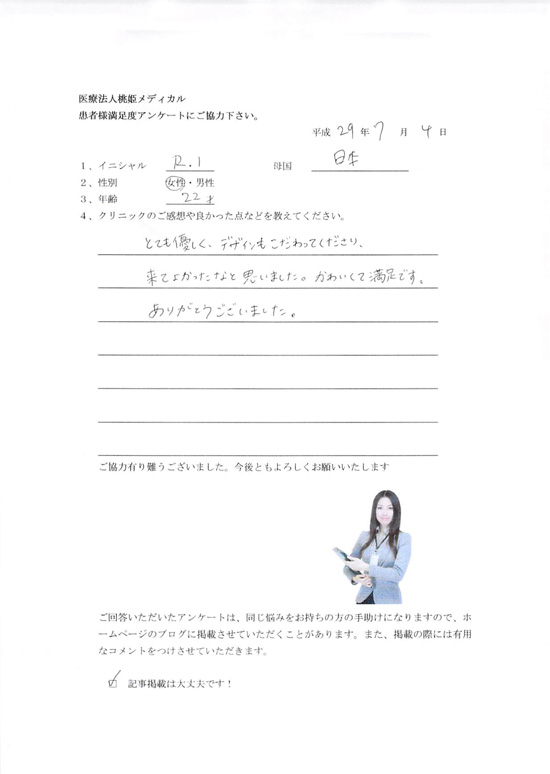 医療法人桃姫メディカル
患者様満足度アンケートにご協力下さい。
平成 29 年 7 月 4 日
1、イニシャル R.I 母国 日本
2、性別 女性・男性
3、年齢 22才
4、クリニックのご感想や良かった点などを教えてください。
とても優しく、デザインもこだわってくださり、
来てよかったなと思いました。かわいくて満足です。
ありがとうございました。
ご協力有り難うございました。今後ともよろしくお願いいたします
ご回答いただいたアンケートは、同じ悩みをお持ちの方の手助けになりますので、ホ
ームページのブログに掲載させていただくことがあります。また、掲載の際には有用
なコメントをつけさせていただきます。
☑ 記事掲載は大丈夫です！